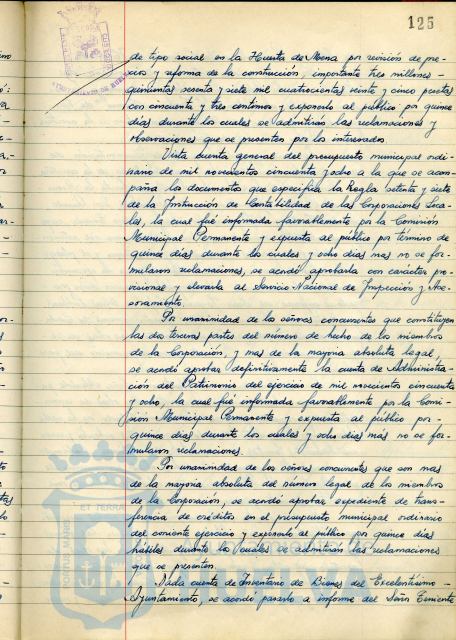 125
de tipo social en la Huerta de Mena por revisión de pre-
cios y reforma de la construcción, importante tres millones -
quinientas sesenta y siete mil cuatrocientas veinte y cinco pesetas
con cincuenta y tres centimos y exponerlo al público por quince
dias durante los cuales se admitirán las reclamaciones y
observaciones que se presenten por los interesados.
Vista cuenta general del presupuesto municipal ordi-
nario de mil novecientos cincuenta y ocho a la que se acom-
paña los documentos que especifica la Regla setenta y siete
de la Instrucción de Contabilidad de las Corporaciones Loca-
les, la cual fué informada favorablemente por la Comisión
Municipal Permanente y expuesta al público por término de
quince dias durante los cuales y ocho dias mas no se for-
mularon reclamaciones, se acordó aprobarla con carácter pro-
visional y elevarla al Servicio Nacional de Inspección y Ase-
soramiento.
Por unanimidad de los señores concurrentes que constituyen
las dos terceras partes del número de hecho de los miembros
de la Corporación, y mas de la mayoria absoluta legal,
se acordó aprobar definitivamente la cuenta de Administra-
ción del Patrimonio del ejercicio de mil novecientos cincuenta
y ocho, la cual fué informada favorablemente por la Comi-
sión Municipal Permanente y expuesta al público por -
quince dias durante los cuales y ocho dias mas no se for-
mularon reclamaciones.
Por unanimidad de los señores concurrentes que son mas
de la mayoria absoluta del número legal de los miembros
de la Corporación, se acordó aprobar expediente de trans-
ferencia de créditos en el presupuesto municipal ordinario
del corriente ejercicio y exponerlo al público por quince dias
habiles durante los cuales se admitirán las reclamaciones
que se presenten.
Dada cuenta de Inventario de Bienes del Excelentísimo -
Ayuntamiento, se acordó pasarlo a informe del Señor Teniente